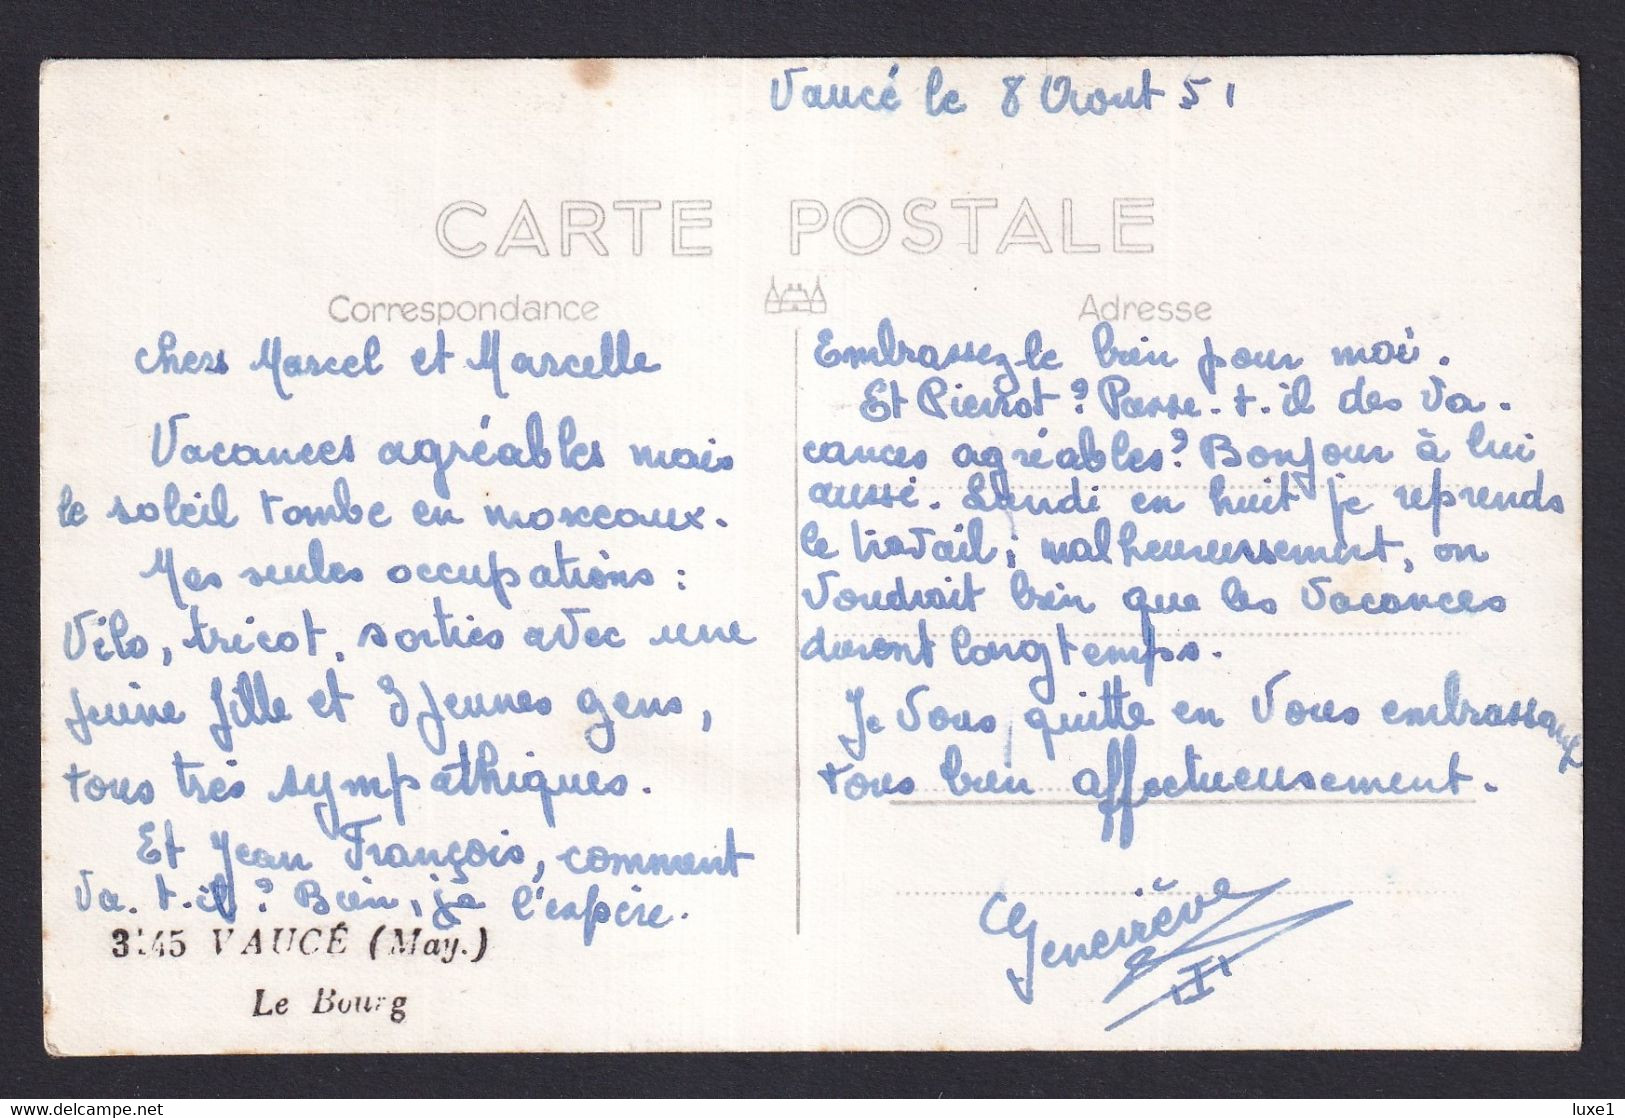 Vaucé le 8 Aout 51
CARTE POSTALE
Correspondance
Adresse
chers Marcel et Marcelle
Vacances agréables mais
le soleil tombe en morceaux.
Mes seules occupations :
Vélo, tricot, sorties avec une
jeune fille et 3 jeunes gens,
tous très sympathiques.
Et Jean François, comment
va-t-il ? Bien, je l'espère.
3145 VAUCÉ (May.)
Le Bourg
Embrassez-le bien pour moi.
Et Pierrot ? Passe-t-il des va-
cances agréables ? Bonjour à lui
aussi. Lundi en huit je reprends
le travail ; malheureusement, on
voudrait bien que les vacances
durent longtemps.
Je vous quitte en vous embrassant
tous bien affectueusement.
Geneviève
delcampe.net
luxe1